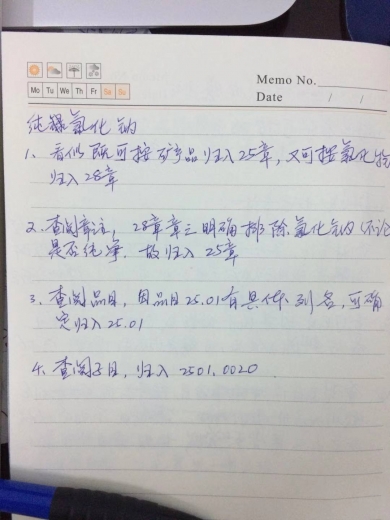 Memo No.
Mo Tu We Th Fr Sa Su
Date / /
纯氯化钠
1、看似既可按矿产品归入25章，又可按氯化物
归入28章
2、查阅章注，28章章三明确排除氯化钠(不论
是否纯净，故归入25章
3、查阅品目，因品目25.01有具体列名，可确
定归入25.01
4、查阅子目，归入 2501.0020